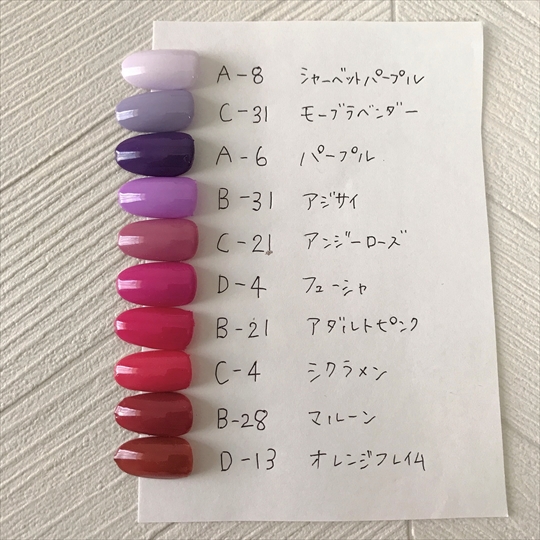 A-8 シャーベットパープル
C-31 モーブラベンダー
A-6 パープル
B-31 アジサイ
C-21 アンジーローズ
D-4 フューシャ
B-21 アダルトピンク
C-4 シクラメン
B-28 マルーン
D-13 オレンジフレイム